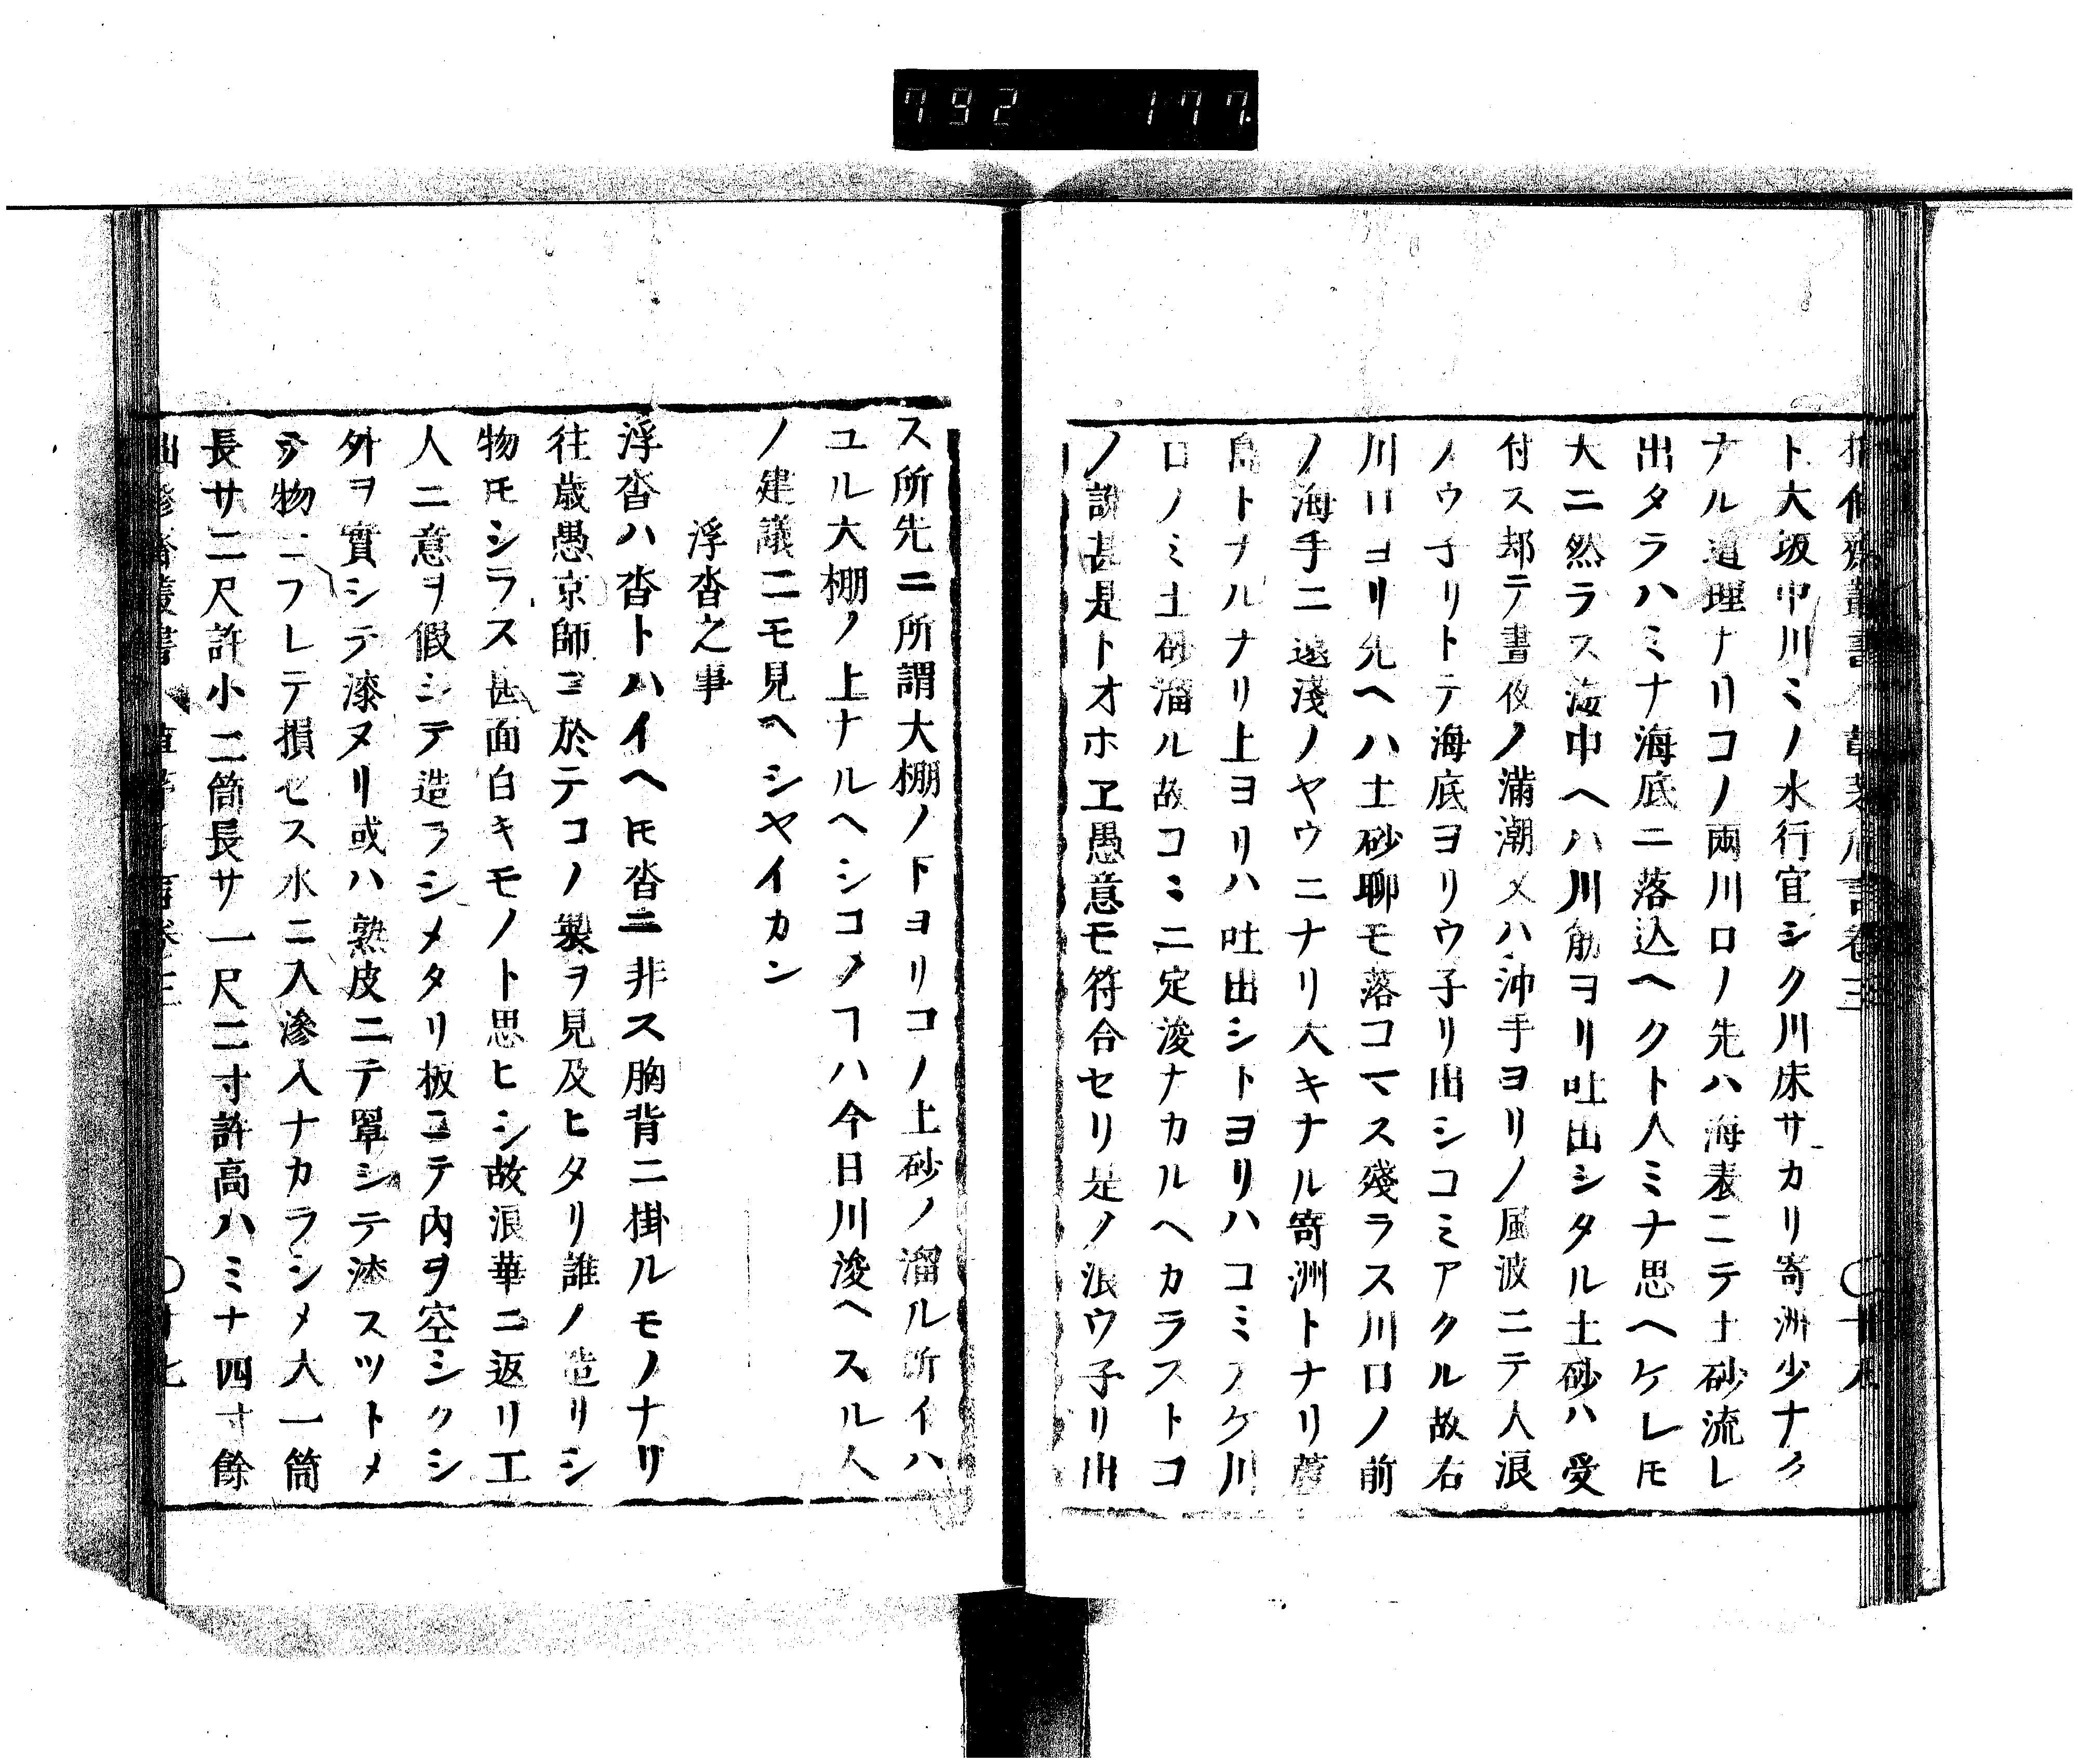 792 177
ト大坂中川ミノ水行宜シク川床サカリ寄洲少ナク
ナル道理ナリコノ両川口ノ先ハ海表ニテ土砂流レ
出タラハミナ海底ニ落込ヘクト人ミナ思ヘケレ𪜈
大ニ然ラス海中ヘハ川筋ヨリ吐出シタル土砂ハ受
付ス却テ晝夜ノ満潮又ハ沖手ヨリノ風波ニテ人浪
ノウ子リトテ海底ヨリウ子リ出シコミアクル故右
川口ヨリ先ヘハ土砂聊モ落コマス殘ラス川口ノ前
ノ海手ニ遠淺ノヤウニナリ大キナル寄洲トナリ
島トナルナリ上ヨリハ吐出シトヨリハコミアケ川
口ノミ土砂溜ル故コミニ定浚ナカルヘカラストコ
ノ説甚是トオホヱ愚意モ符合セリ是ノ浪ウ子リ出
ス所先ニ所謂大棚ノ下ヨリコノ土砂ノ溜ル所イハ
ユル大棚ノ上ナルヘシコノヿハ今日川浚ヘスル人
ノ建議ニモ見ヘシヤイカン
浮沓之事
浮沓ハ沓トハイヘ𪜈沓ニ非ス胸背ニ掛ルモノナリ
往歳愚京師ニ於テコノ製ヲ見及ヒタリ誰ノ造リシ
物𪜈シラス甚面白キモノト思ヒシ故浪華ニ返リ工
人ニ意ヲ假シテ造ラシメタリ板ニテ内ヲ空シクシ
外ヲ實シテ漆ヌリ或ハ熟皮ニテ罩シテ漆スツトメ
テ物ニフレテ損セス水ニ入滲入ナカラシメ大一筒
長サ二尺許小二筒長サ一尺二寸許高ハミナ四寸餘